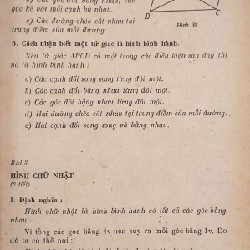 gốc kề với mỗi cạnh bù nhau.
c) Các đường chéo cắt nhau tại
trung điểm của mỗi đường
D
Hình 31
5. Cách nhận biết một tứ giác là hình bình hành.
Nếu tứ giác ABCD có một trong các điều kiện sau đây thì
nó là hình bình hành :
a) Các cạnh đối song song từng đôi một.
b) Các cạnh đối bằng nhau từng đôi một.
c) Các góc đối bằng nhau từng đôi một.
d) Hai đường chéo cắt nhau tại trung điểm của mỗi đường.
e) Hai cạnh đối song song và bằng nhau.
Bài 8
HÌNH CHỮ NHẬT
1. Định nghĩa :
Hình chữ nhật là hình bình hành có tất cả các góc bằng
nhau
Vì tổng các góc bằng 4v nên suy ra mỗi góc bằng 1v. Do
đó ta có thể nói :